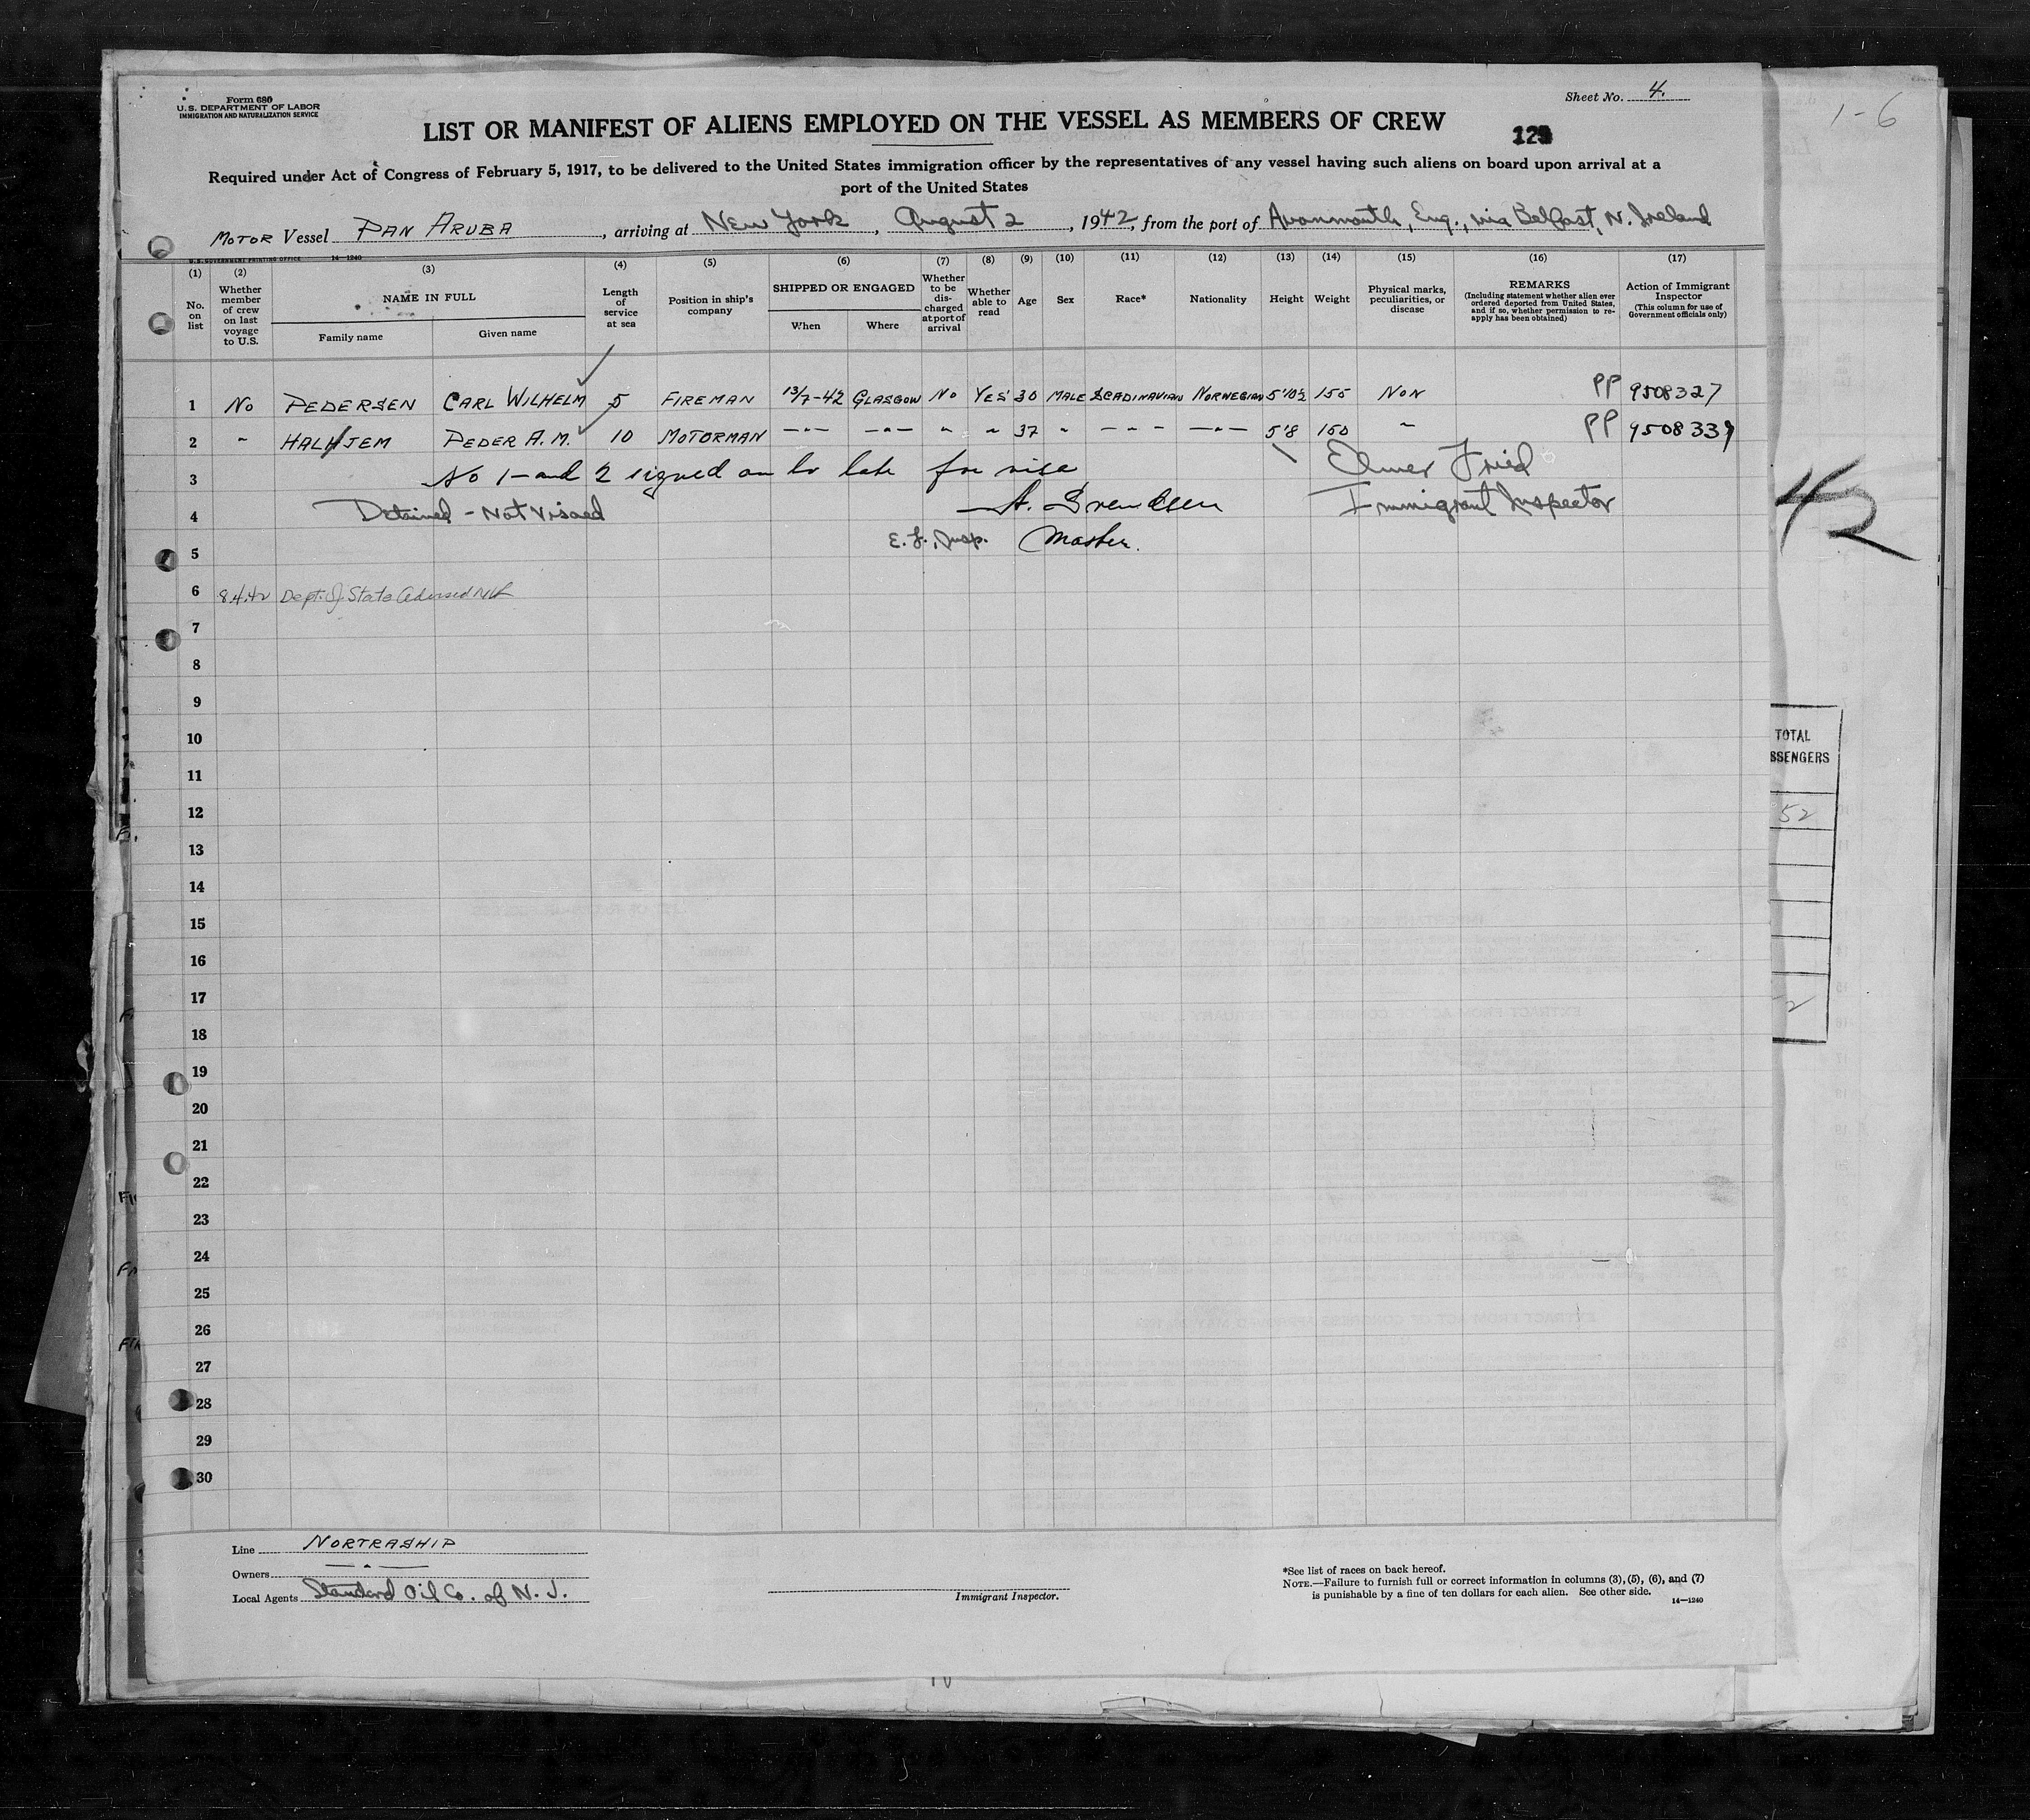 Form 680
U.S. DEPARTMENT OF LABOR
IMMIGRATION AND NATURALIZATION SERVICE
Sheet No. 4.
1-6
LIST OR MANIFEST OF ALIENS EMPLOYED ON THE VESSEL AS MEMBERS OF CREW
Required under Act of Congress of February 5, 1917, to be delivered to the United States immigration officer by the representatives of any vessel having such aliens on board upon arrival at a
port of the United States
MOTOR Vessel PAN ARUBA, arriving at New York, August 2, 1942, from the port of Avonmouth, Eng., via Belfast, N. Ireland
U.S. GOVERNMENT PRINTING OFFICE 14—1240
(1) (2) (3) (4) (5) (6) (7) (8) (9) (10) (11) (12) (13) (14) (15) (16) (17)
No. on list
Whether member of crew on last voyage to U.S.
NAME IN FULL
Family name
Given name
Length of service at sea
Position in ship's company
SHIPPED OR ENGAGED
When
Where
Whether to be discharged at port of arrival
Whether able to read
Age
Sex
Race*
Nationality
Height
Weight
Physical marks, peculiarities, or disease
REMARKS
(Including statement whether alien ever ordered deported from United States, and if so, whether permission to reapply has been obtained)
Action of Immigrant Inspector
(This column for use of Government officials only)
1 No PEDERSEN CARL WILHELM 5 FIREMAN 13/7-42 GLASGOW No YES 30 MALE SCADINAVIAN NORWEGIAN 5'10½ 155 NON PP 9508327
2 " HALHJEM PEDER A.M. 10 MOTORMAN -"- -"- " " 37 " -"- -"- 5'8 150 " PP 9508339
3 No 1 - and 2 signed on to late for visa Elmer Fried
4 Detained - Not Visaed A. Svendsen Immigrant Inspector
5 E.F., Insp. Master.
42
6 8.4.42 Dept. of State advised
7
8
9
10
TOTAL
SSENGERS
11
12
52
13
14
15
16
17
18
19
20
21
22
23
24
25
26
27
28
29
30
Line NORTRASHIP
Owners -"-
Local Agents Standard Oil Co. of N. J.
Immigrant Inspector.
*See list of races on back hereof.
NOTE.—Failure to furnish full or correct information in columns (3), (5), (6), and (7)
is punishable by a fine of ten dollars for each alien. See other side.
14—1240